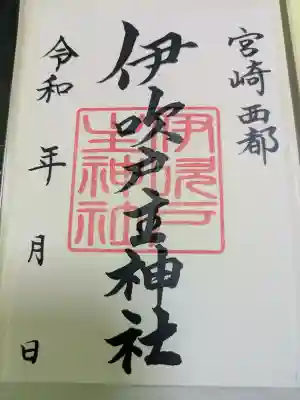 宮崎 西都
伊吹戸主神社
令和 年 月 日
伊吹戸
主神社